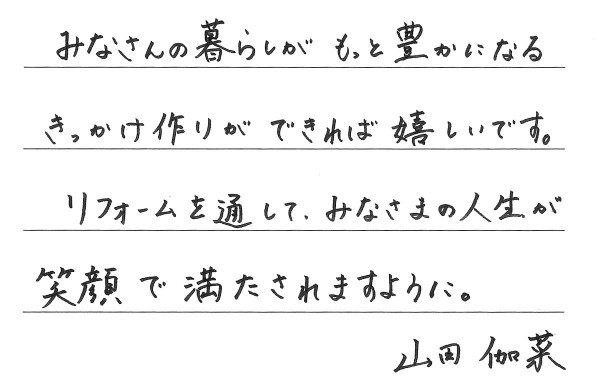 みなさんの暮らしが もっと豊かになる
きっかけ作りが できれば 嬉しいです。
リフォームを通して、みなさまの人生が
笑顔で満たされますように。
山田 伽菜